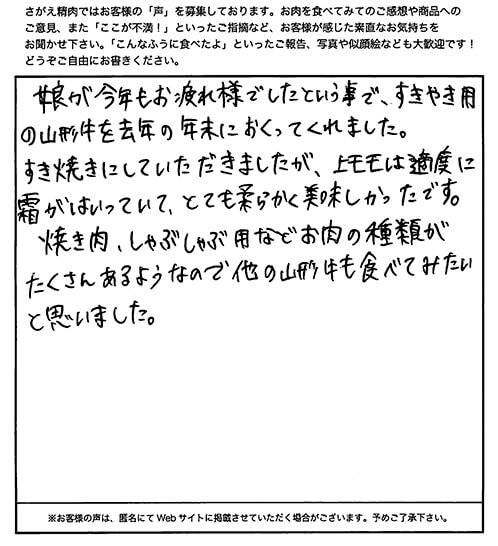 さがえ精肉ではお客様の「声」を募集しております。お肉を食べてみてのご感想や商品への
ご意見、また「ここが不満！」といったご指摘など、お客様が感じた素直なお気持ちを
お聞かせ下さい。「こんなふうに食べたよ」といったご報告、写真や似顔絵なども大歓迎です！
どうぞご自由にお書きください。
娘が今年もお疲れ様でしたという事で、すきやき用
の山形牛を去年の年末におくってくれました。
すき焼きにしていただきましたが、上モモは適度に
霜がはいっていて、とても柔らかく美味しかったです。
焼き肉、しゃぶしゃぶ用などお肉の種類が
たくさんあるようなので他の山形牛も食べてみたい
と思いました。
※お客様の声は、匿名にてWebサイトに掲載させていただく場合がございます。予めご了承下さい。